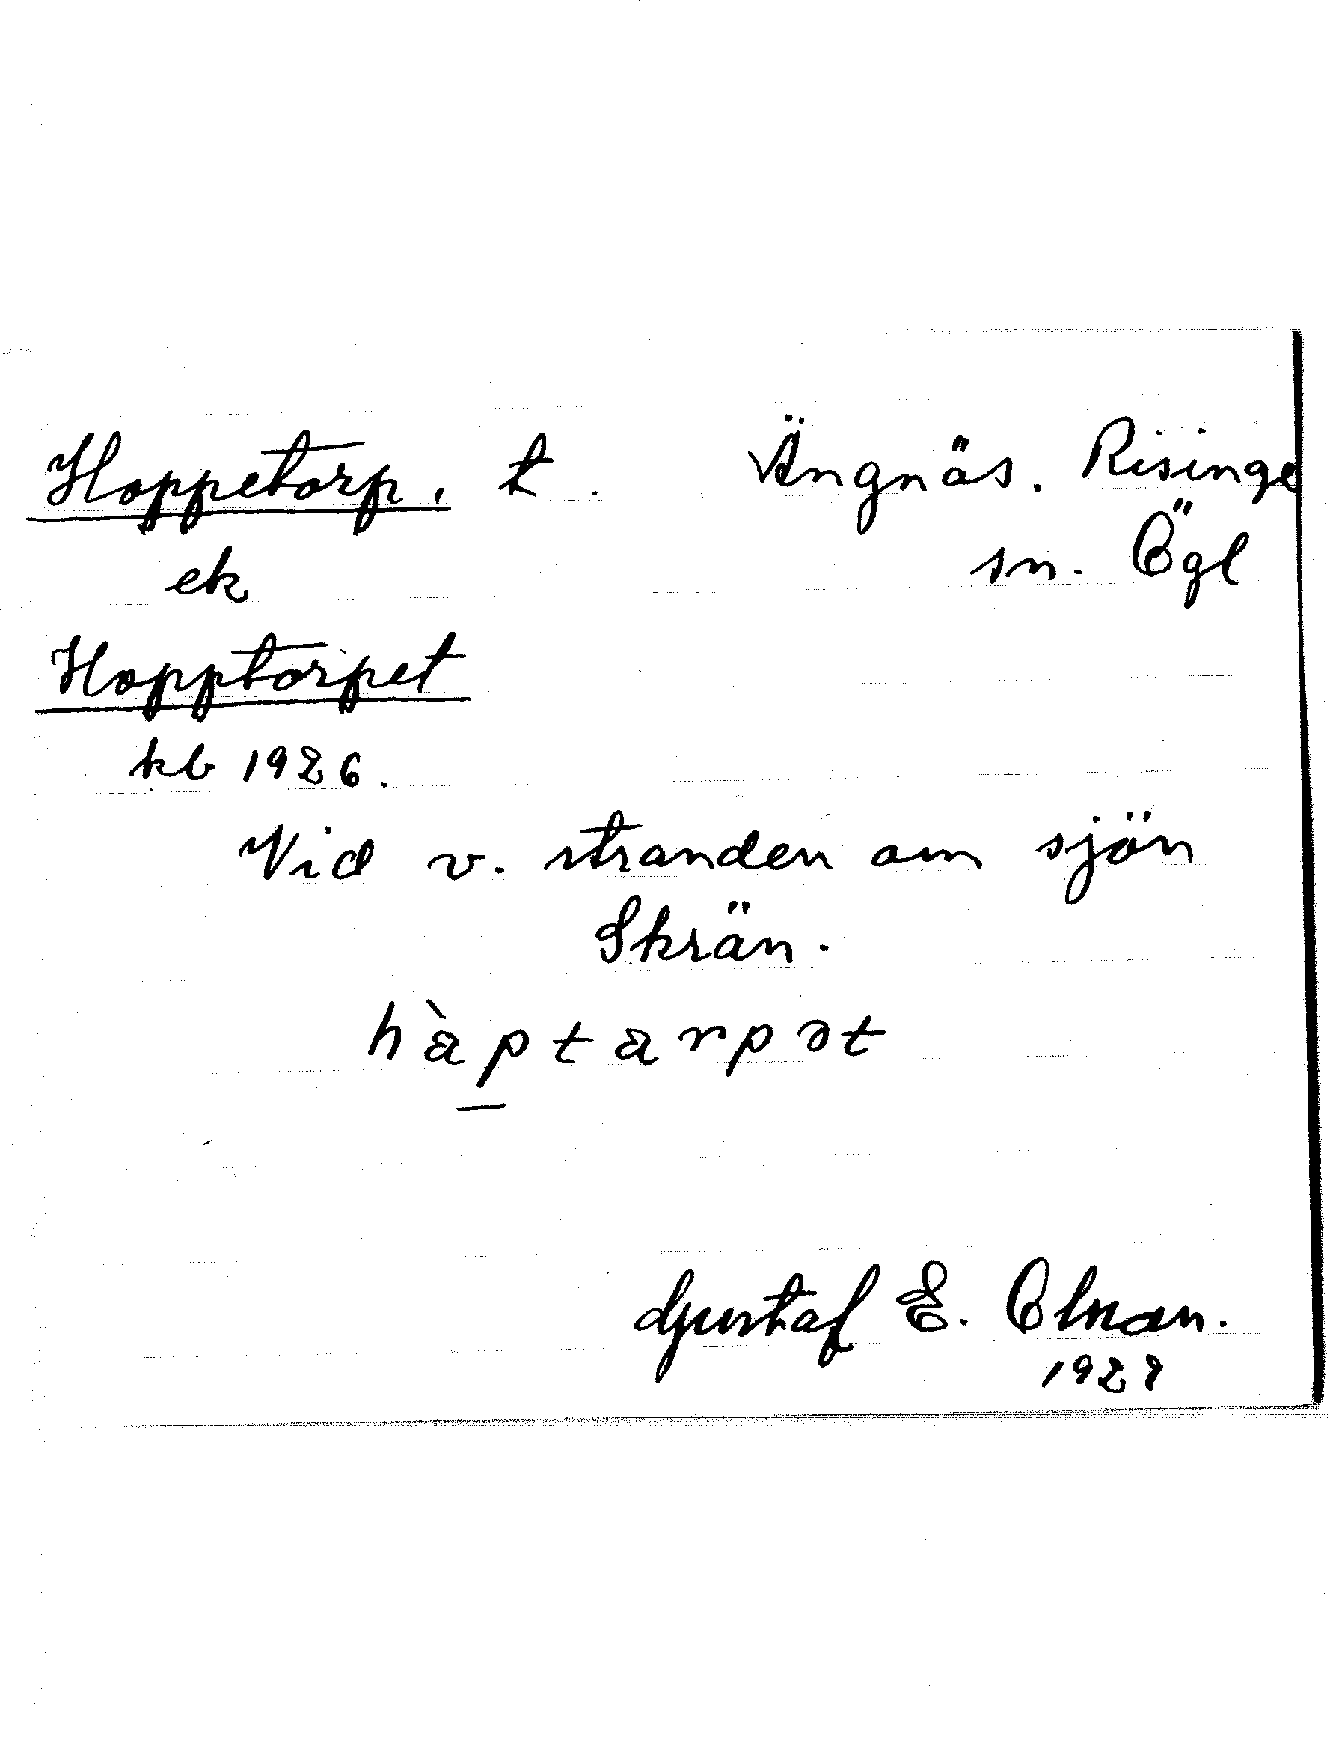 Hoppetorp. t. Ängnäs. Risinge
ek sn. Ögl
Hopptorpet
kb 1926.
Vid v. stranden om sjön
Skrän.
hàptarpət
Gustaf E. Olman.
1928